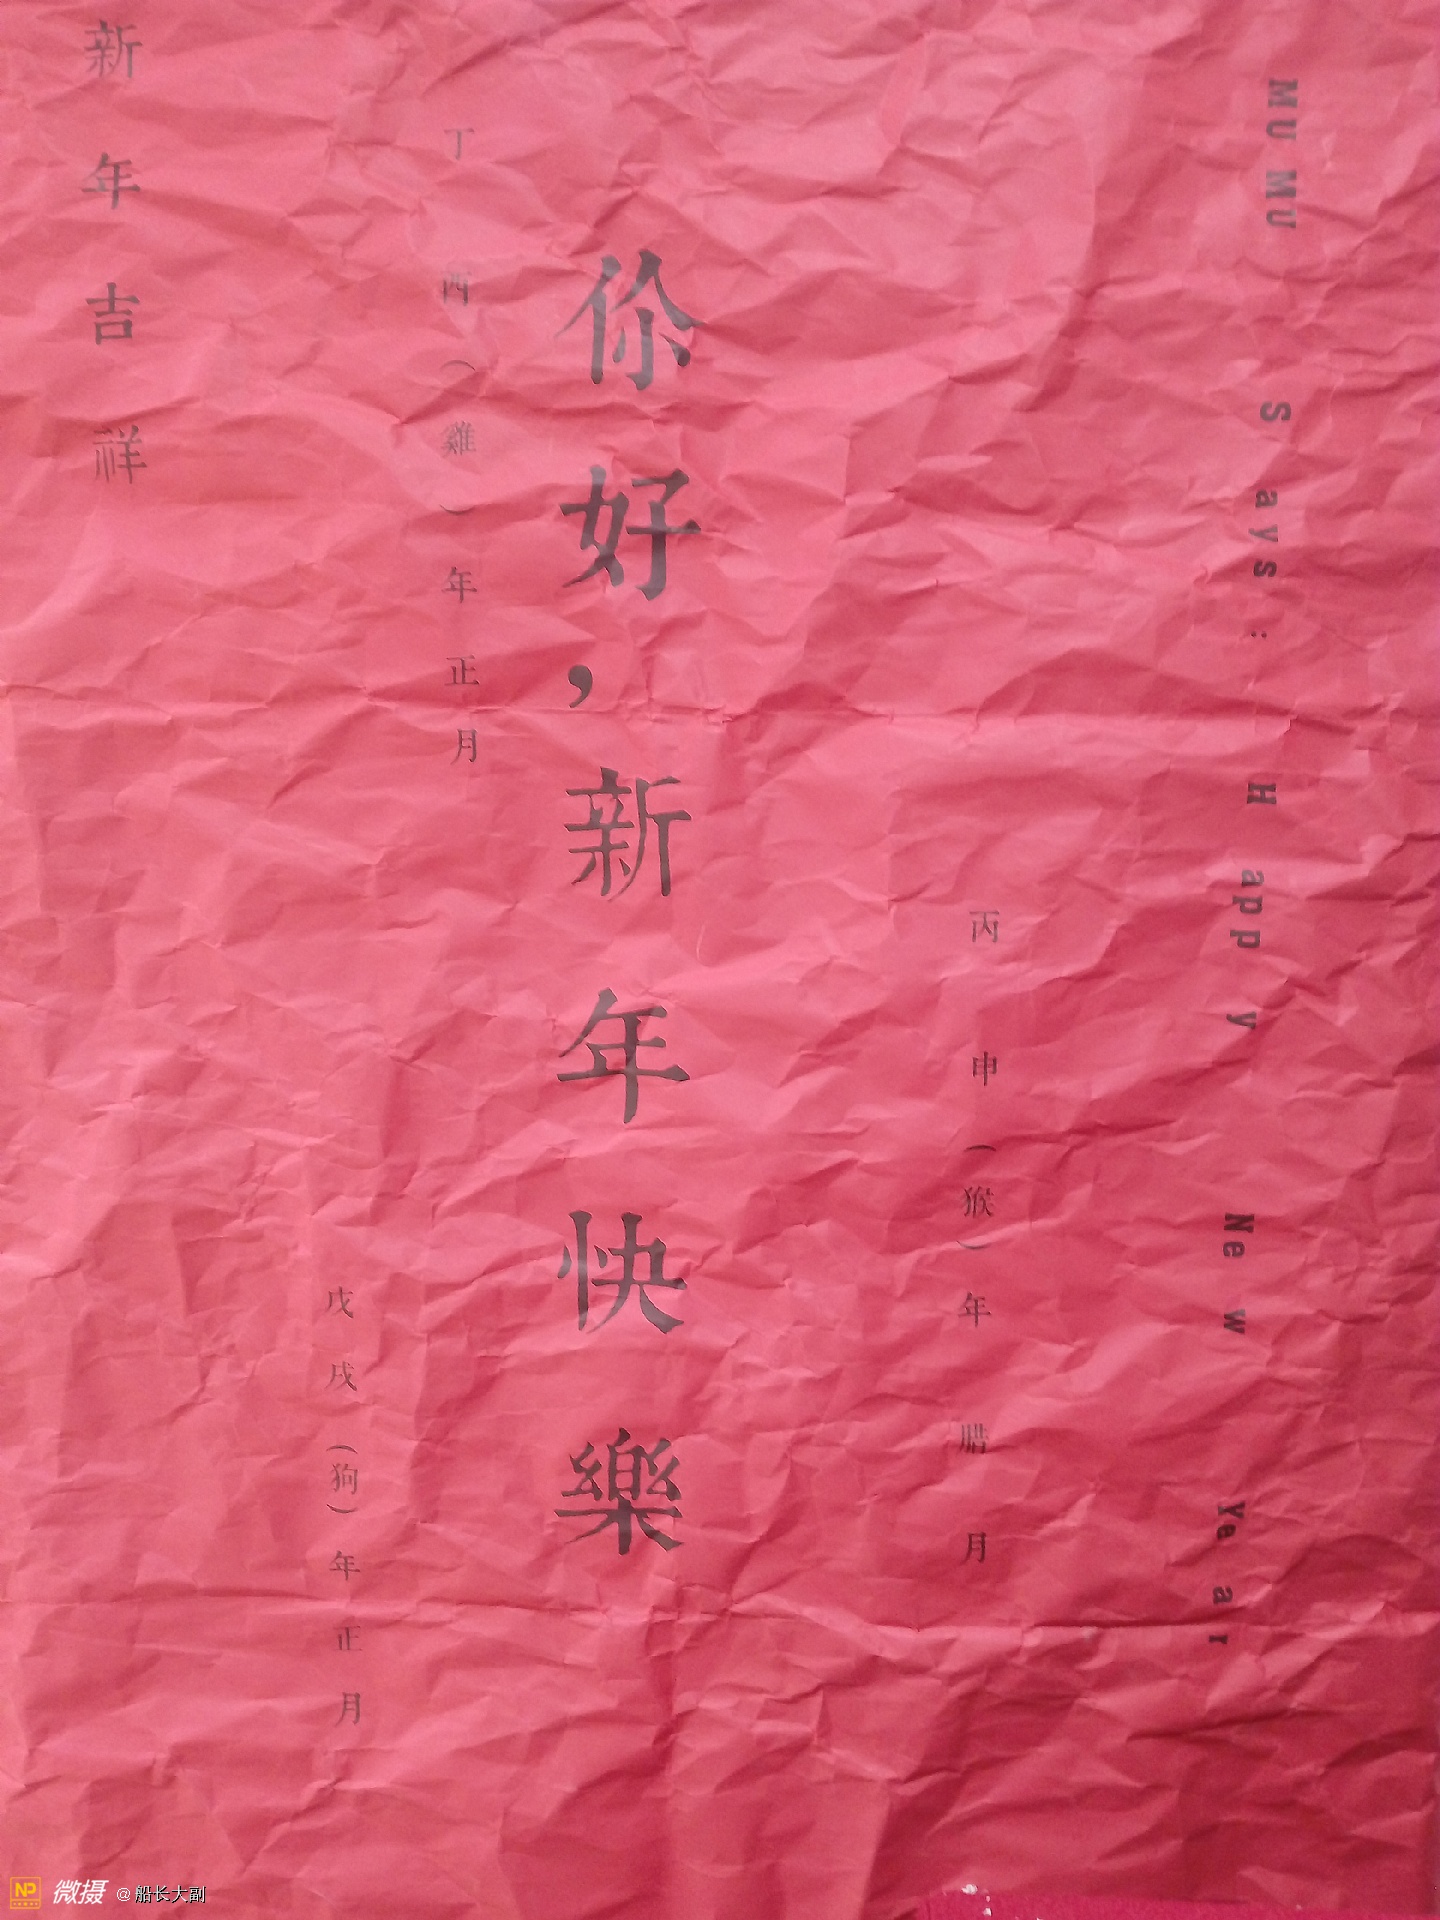 MUMU Says: Happy New Year
丙申(猴)年腊月
伱好,新年快樂
丁酉(雞)年正月
戊戌(狗)年正月
新年吉祥
NP 微摄 @船长大副